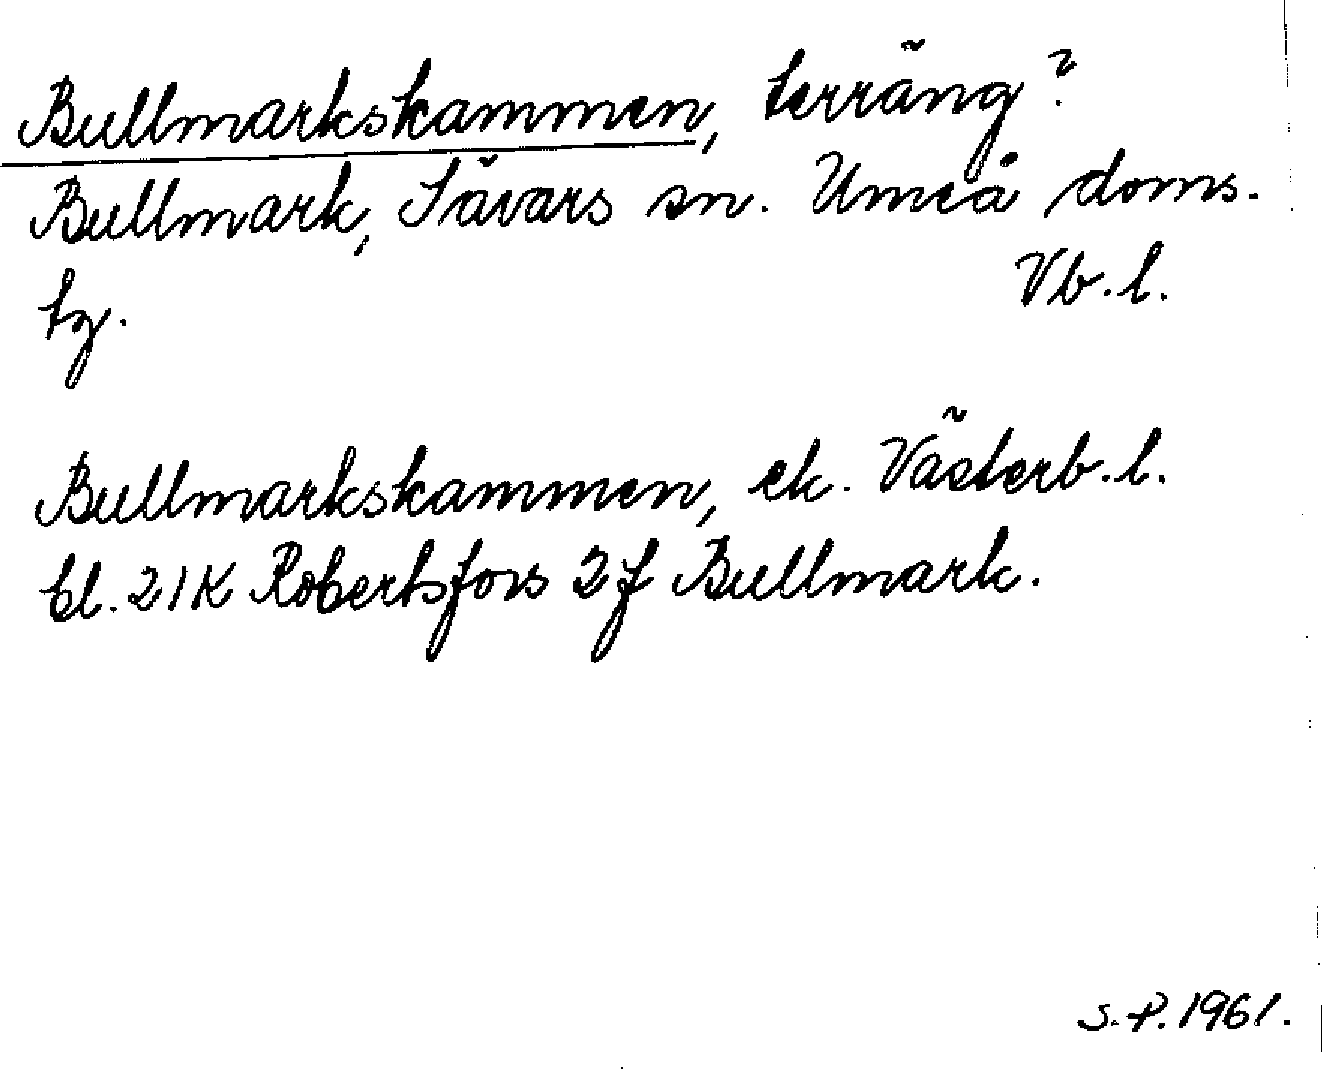 Bullmarkskammen, terräng?
Bullmark, Sävars sn. Umeå doms.
tg. Vb.l.
Bullmarkskammen, ek. Västerb.l.
bl. 21K Robertsfors 2f Bullmark.
S.P. 1961.